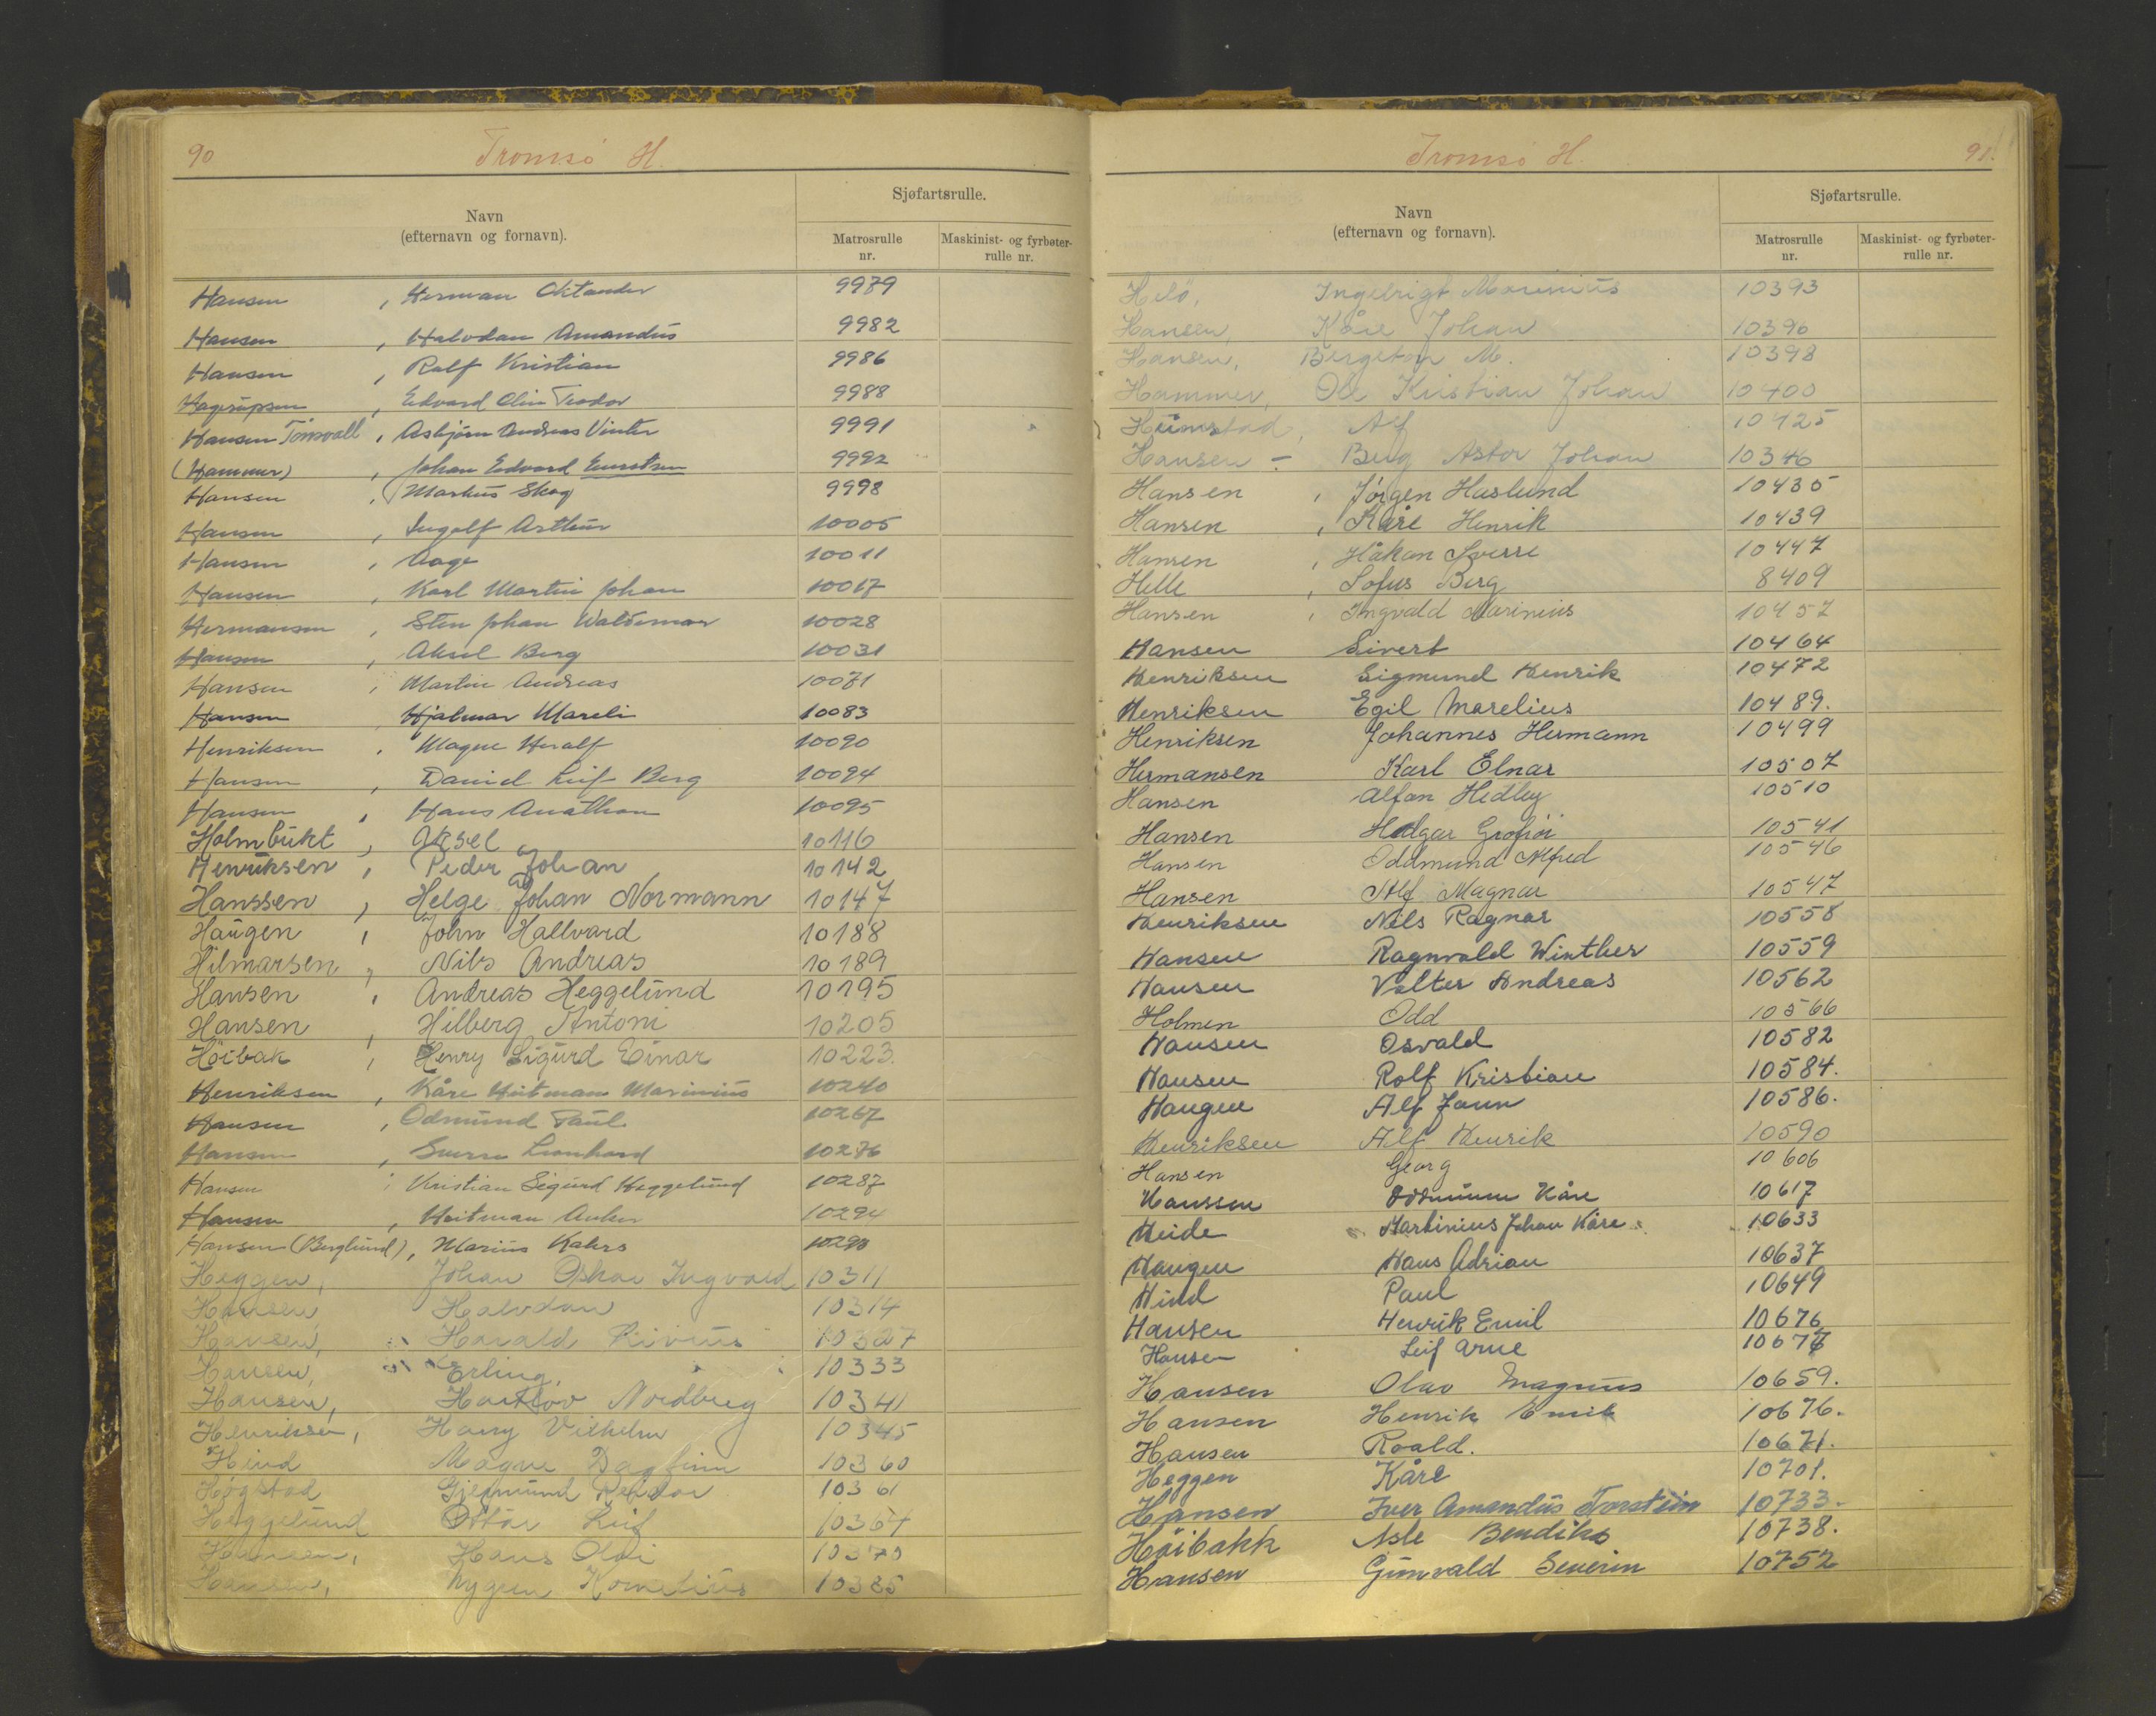 90
Tromsø H.
Navn
(efternavn og fornavn).
Sjøfartsrulle.
Matrosrulle nr.
Maskinist- og fyrbøter-rulle nr.
Hansen , Herman Oktander 9979
Hansen , Halvdan Amandus 9982
Hansen , Rolf Kristian 9986
Hagerupsen , Edvard Olin Teodor 9988
Hansen Tömvall , Asbjörn Andreas Vinter 9991
(Hammer) , Johan Edvard 9992
Hansen , Markus Skog 9998
Hansen , Ingolf Arthur 10005
Hansen , Aage 10011
Hansen , Karl Martin Johan 10017
Hermansen , Sten Johan Waldemar 10028
Hansen , Aksel Berg 10031
Hansen , Martin Andreas 10071
Hansen , Hjalmar Mareli 10083
Henriksen , Magne Heralf 10090
Hansen , Daniel Leif Berg 10094
Hansen , Hans Anathon 10095
Holmbukt , Aksel 10116
Henriksen , Peder Johan 10142
Hanssen , Helge Johan Normann 10147
Haugen , John Hallvard 10188
Hilmarsen , Nils Andreas 10189
Hansen , Andreas Heggelund 10195
Hansen , Hilberg Antoni 10205
Höibak , Henry Sigurd Einar 10223.
Henriksen , Kåre Hitman Marinius 10240
Hansen , Odmund Paul 10267
Hansen , Sverre Leonhard 10276
Hansen , Kristian Sigurd Heggelund 10287
Hansen , Heitman Anker 10294
Hansen (Berglund) , Marius Kahrs
Heggen, Johan Oskar Ingvald 10311
Hansen, Halvdan 10314
Hansen, Harald Livius 10327
Hansen, Erling. 10333
Hansen, Hartlov Nordberg 10341
Henriksen, Harry Vilhelm 10345
Hind Magne Dagfinn 10360
Høgstad Gjermund Reidar 10361
Heggelund Ottar Leif 10364
Hansen, Hans Olai 10370
Hansen, Trygve Kornelius 10385
Tromsø H. 91.
Navn
(efternavn og fornavn).
Sjøfartsrulle.
Matrosrulle nr.
Maskinist- og fyrbøter-rulle nr.
Helö, Ingebrigt Marinius 10393
Hansen, Kåre Johan 10396
Hansen, Bergeton M. 10398
Hammer, Ole Kristian Johan 10400
Heimstad, Alf 10425
Hansen - Berg Astor Johan 10346
Hansen , Jörgen Haslund 10435
Hansen , Kåre Henrik 10439
Hansen , Håkon Sverre 10447
Helle , Sofus Berg 8409
Hansen , Ingvald Marinius 10457
Hansen Sivert 10464
Henriksen Sigmund Henrik 10472
Henriksen Egil Marelius 10489.
Henriksen Johannes Hermann 10499
Hermansen Karl Elnar 10507
Hansen Alfan Hedley 10510
Hansen Hilgar 10541
Hansen Oddmund Alfred 10546
Hansen Alf Magnar 10547
Henriksen Nils Ragnar 10558
Hansen Ragnvald Winther 10559
Hansen Valter Andreas 10562
Holmen Odd 10566
Hansen Osvald 10582
Hansen Rolf Kristian 10584.
Haugen Alf Jann 10586.
Henriksen Alf Henrik 10590
Hansen Georg 10606
Hanssen Oddmunn Kåre 10617
Heide Martinius Johan Kåre 10633
Haugen Hans Adrian 10637
Hind Paul 10649
Hansen Henrik Emil 10676
Hansen Leif Arne 10677
Hansen Olav Magnus 10659.
Hansen Henrik Emil 10676.
Hansen Roald. 10671.
Heggen Kåre 10701.
Hansen Iver Amandus Torstein 10733.
Höibakk Asle Bendiks 10738.
Hansen Gunvald Severin 10752